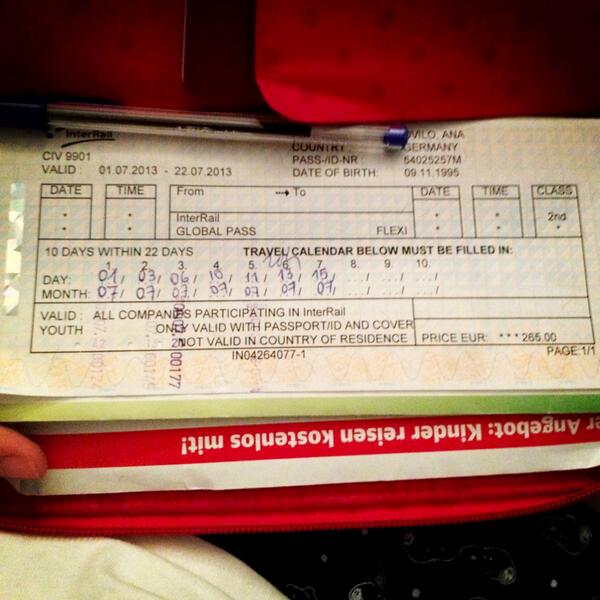 InterRail
CIV 9901
VALID : 01.07.2013 - 22.07.2013
OVILO, ANA
COUNTRY : GERMANY
PASS-/ID-NR 54025257M
DATE OF BIRTH: 09 11.1995
DATE TIME From → To DATE TIME CLASS
InterRail 2nd
GLOBAL PASS FLEXI
10 DAYS WITHIN 22 DAYS TRAVEL CALENDAR BELOW MUST BE FILLED IN:
1. 2. 3. 4. 5. 6. 7. 8. 9. 10.
DAY: 01/ 03/ 06/ 10/ 11/ 13/ 15/ .../ .../ ...
MONTH: 07/ 07/ 07/ 07/ 07/ 07/ 07/ .../ .../ ...
VALID : ALL COMPANIES PARTICIPATING IN InterRail
YOUTH ONLY VALID WITH PASSPORT/ID AND COVER
NOT VALID IN COUNTRY OF RESIDENCE
PRICE EUR: ***265.00
IN04264077-1
PAGE:1/1
00177
er Angebot: Kinder reisen kostenlos mit!